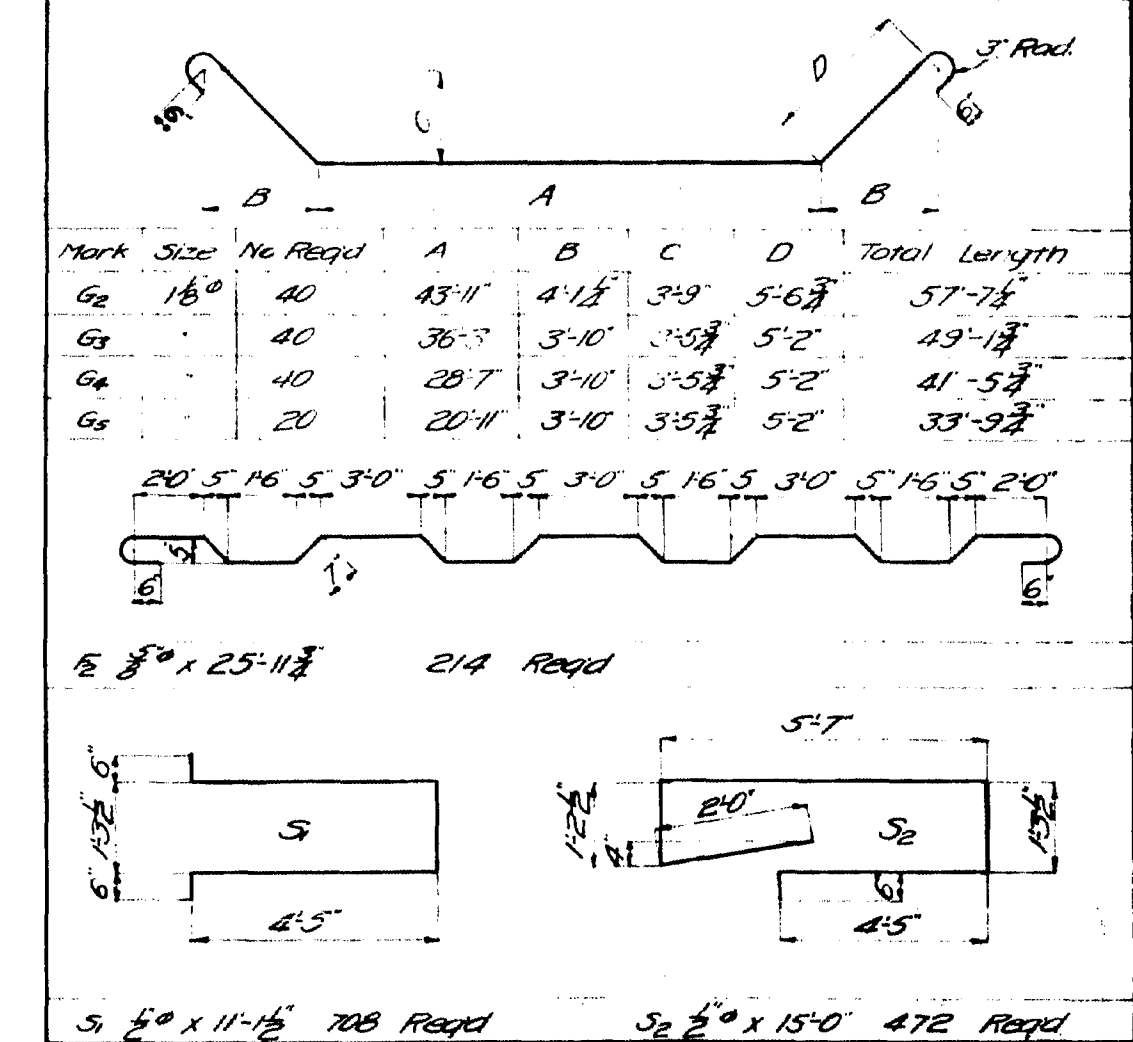 3" Rad.
D
C
6"
6"
B A B
Mark Size No Req'd A B C D Total Length
G2 1 1/8"ø 40 43'-11" 4'-1 1/4" 3'-9" 5'-6 3/4" 57'-7 1/4"
G3 " 40 36'-3" 3'-10" 3'-5 3/4" 5'-2" 49'-1 3/4"
G4 " 40 28'-7" 3'-10" 3'-5 3/4" 5'-2" 41'-5 3/4"
G5 " 20 20'-11" 3'-10" 3'-5 3/4" 5'-2" 33'-9 3/4"
2'-0" 5" 1'-6" 5" 3'-0" 5" 1'-6" 5" 3'-0" 5" 1'-6" 5" 3'-0" 5" 1'-6" 5" 2'-0"
5"
7"
6" 6"
F2 5/8"ø x 25'-11 3/4" 214 Req'd
5'-7"
6"
1'-3 1/2"
6"
S1
4'-5"
1'-2 1/2"
4"
2'-0"
S2
1'-3 1/2"
6"
4'-5"
S1 1/2"ø x 11'-1 1/2" 708 Req'd
S2 1/2"ø x 15'-0" 472 Req'd